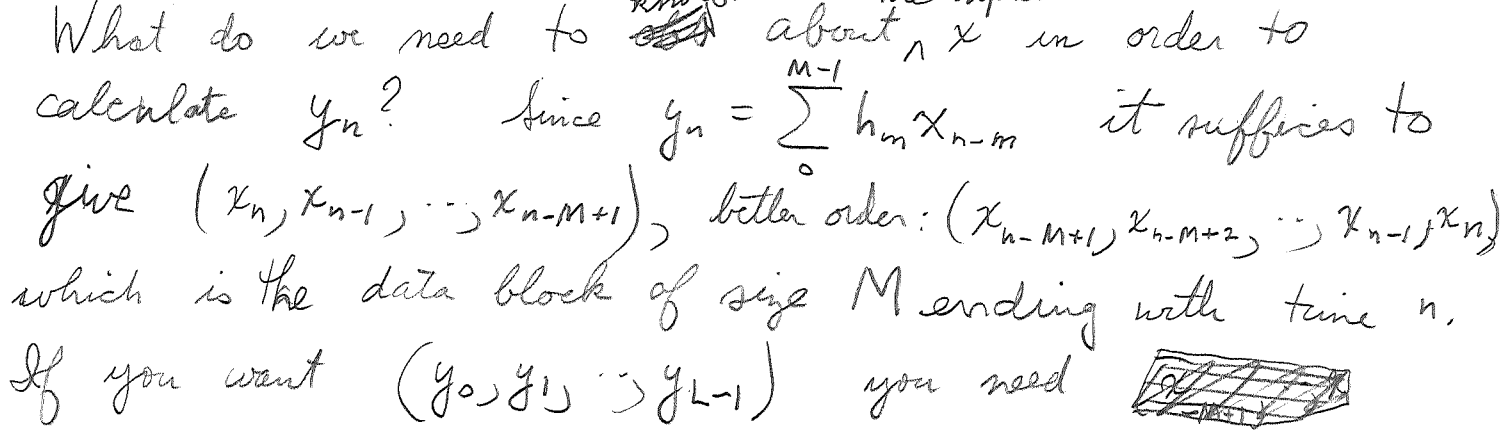 What do we need to know about ∧ x in order to
calculate yₙ? Since yₙ = ∑₀^{M-1} hₘxₙ₋ₘ it suffices to
give (xₙ, xₙ₋₁, ..., x_{n-M+1}), better order: (x_{n-M+1}, x_{n-M+2}, ..., xₙ₋₁, xₙ)
which is the data block of size M ending with time n.
If you want (y₀, y₁, ..., y_{L-1}) you need